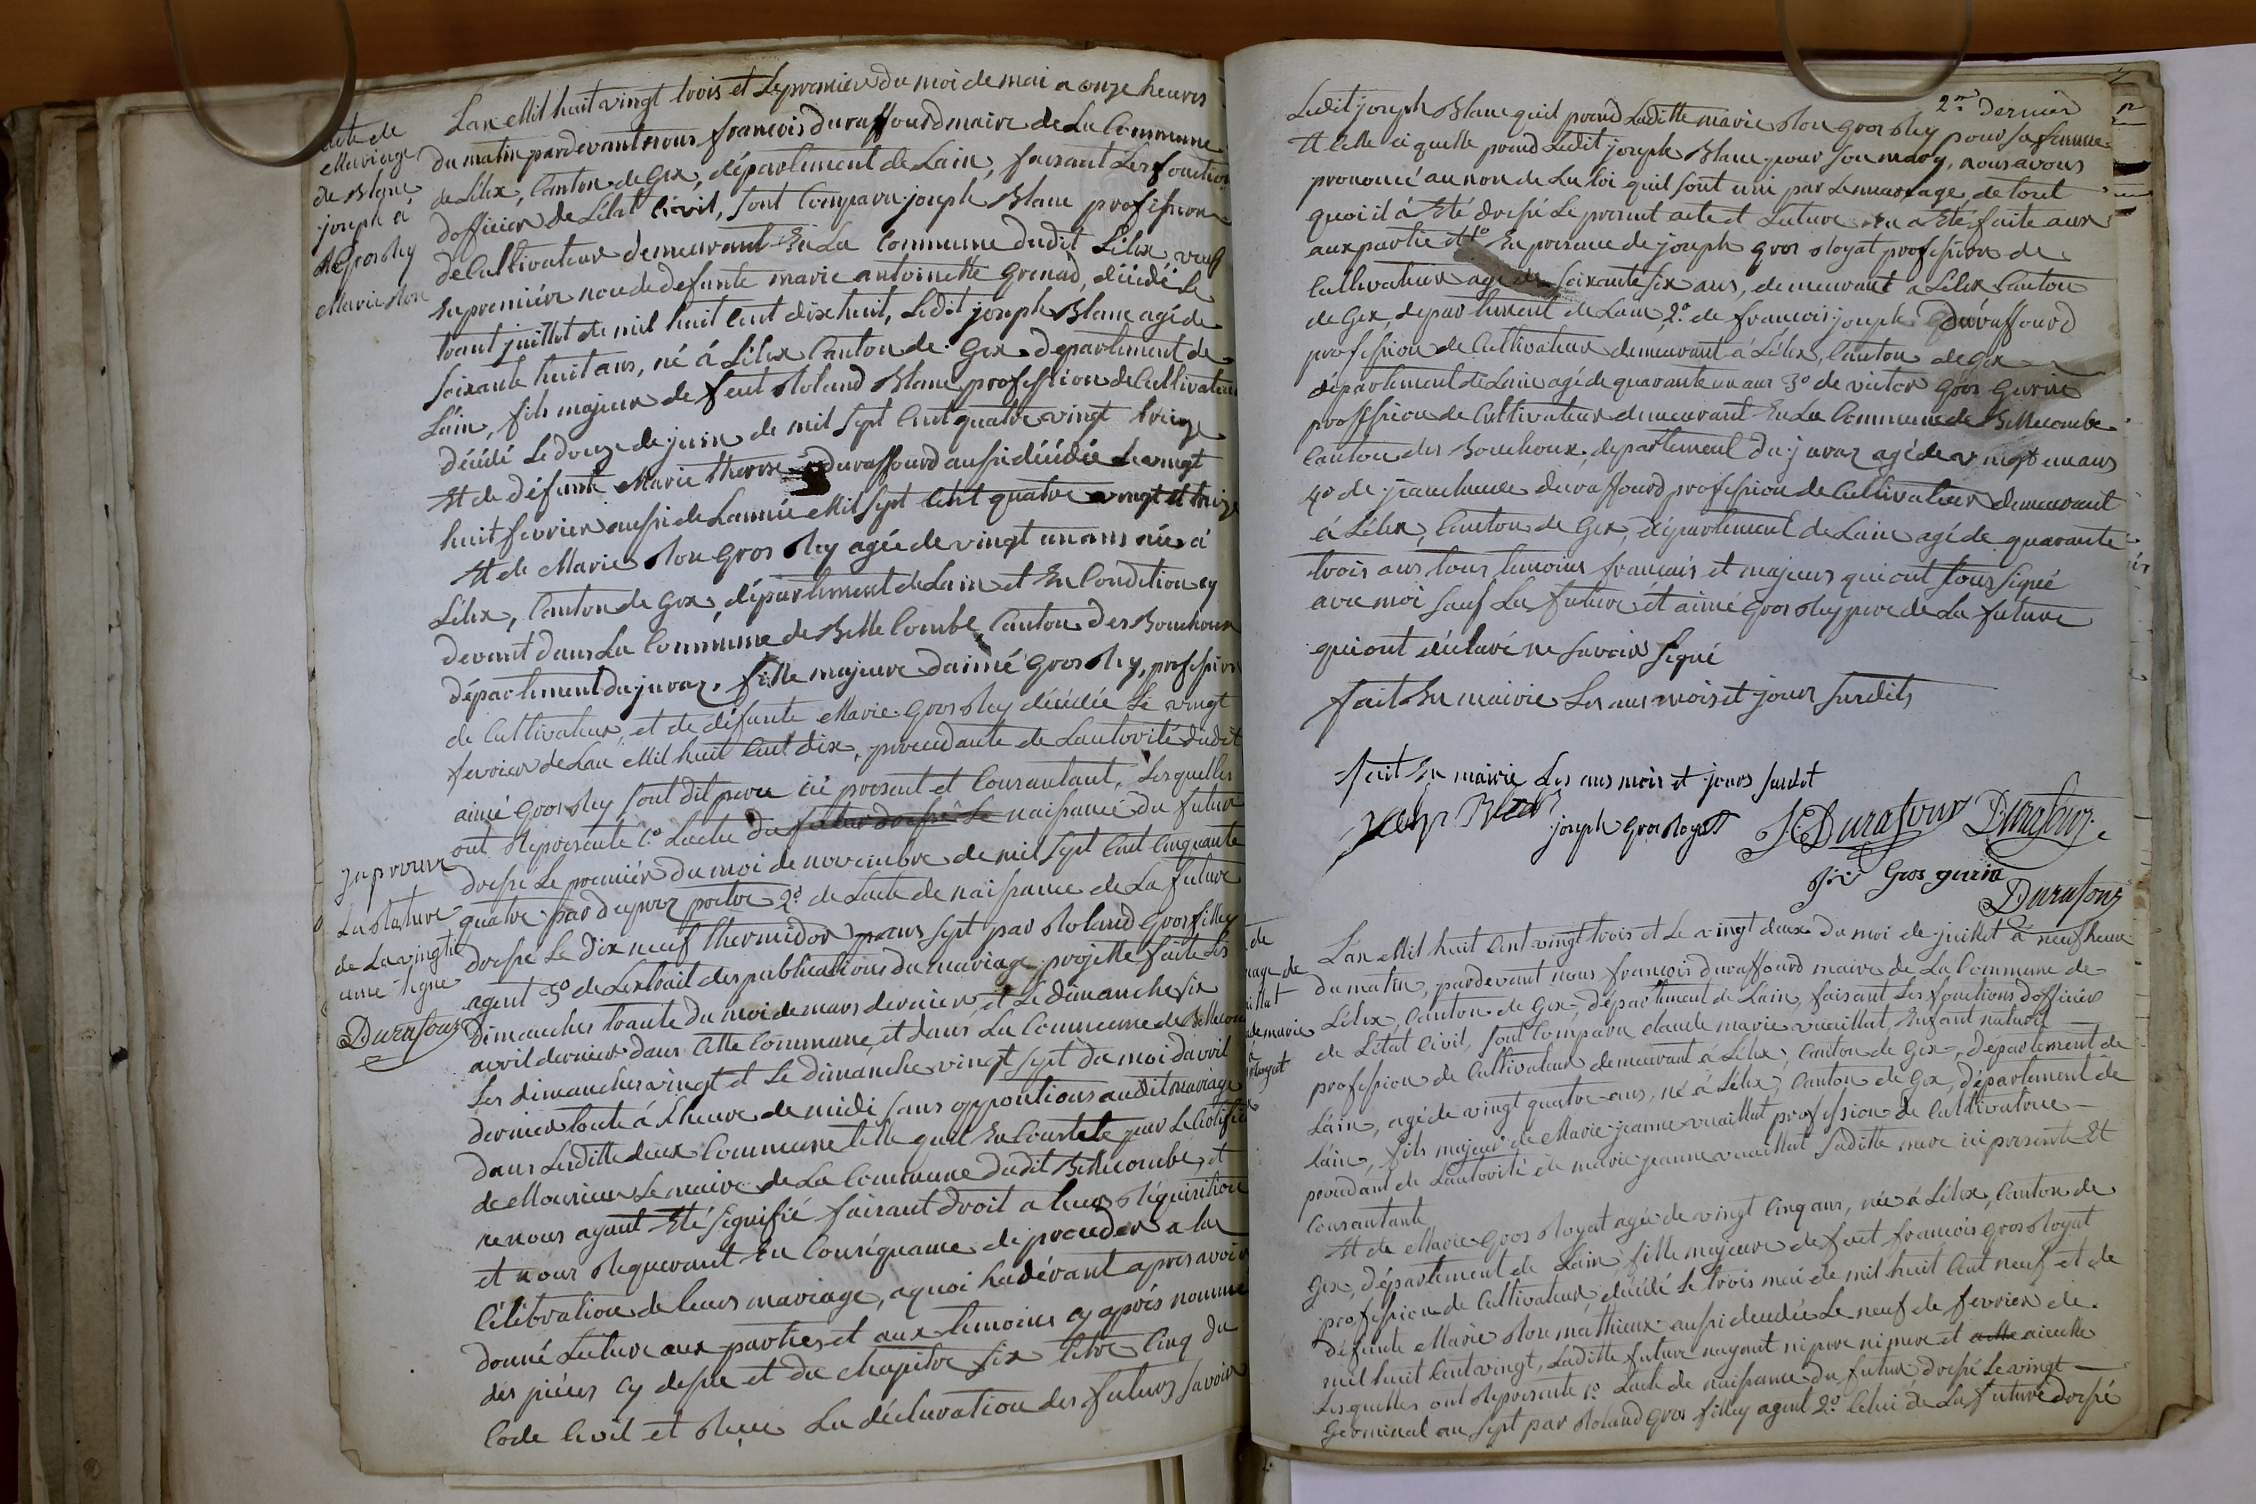 acte de
Mariage
de Blanc
joseph à
Gros Rey
Marie Rose
Lan Mil huit vingt trois et Le premier du moi de mai a onze heures
du matin pardevant nous francois duraffourd maire de La Commune
de Lélex, Canton de Gex, département de Lain, faisant Les fonction
dofficier de Létat Civil, sont Comparu joseph Blanc profission
de Cultivateur demeurant En La Commune dudit Lélex veuf
En premiére noce de defunte marie antoinette Grenard, décédé Le
trant juillet de mil huit Cent dix huit, Ledit joseph Blanc agé de
soixante huit ans, né á Lélex Canton de Gex département de
Lain, fils majeur de feut Roland Blanc profession de Cultivateur
décédé Le douze de juin de mil sept Cent quatre vingt treize
Et de défunte Marie therese duraffourd aussi décédée Le vingt
huit fevrier aussi de Lannée Mil sept Cent quatre vingt et treize
Et de Marie Rose Gros Rey agée de vingt un ans née á
Lélex, Canton de Gex, département de Lain et En Condition cy
devant dans La Commune de Belle Combe Canton des Bouchoux
département du juraz, fille majeure daimé Gros Rey, profission
de Cultivateur, et de défunte Marie Gros Rey décédée Le vingt
fevrier de Lan Mil huit Cent dix, procedante de Lautorité dudit
aimé Gros Rey sont dit pere ici present et Consantant, Lesquelles
ont Representé 1o Lacte du naissance du futur
Japrouve
La Rature
de La vingte
une ligne
Durafour
dressé Le premiér du moi de novembre de mil sept Cent Cinquante
quatre par dupraz pretre 2o de Lacte de naissance de La future
dressé Le dix neuf thermidor ans sept par Roland Gros filley
agent 3o de Lextrait des publications du mariage projetté faite Les
dimanches trante du moi de mars dernier et Le dimanche six
avril dernier dans Cette Commune, et dans La Commune de Bellecombe
Les dimanches vingt et Le dimanche vingt sept du moi davril
dernier toute á Lheure de midi sans oppositions audit mariage
dans Lesditte deux Commune telle quil En Conste par Le Certificat
de Monsieur Le maire de La Commune dudit Bellecombe, et
ne nous ayant Eté signifié faisant droit a leur Réquisition
et nous Requerant En Conséquance de proceder a La
Célébration de leurs mariage, aquoi Ladévant apres avoir
donné Lecture aux parties et aux temoins cy aprés nommé
des piéces cy desse et du chapitre six titre Cinq du
Code Civil et Reçu La déclaration des futurs savoir
2me Dernier
Ledit joseph Blanc quil prend Laditte marie Rose Gros Rey pour sa femme
Et Celle ci quelle prend Ledit joseph Blanc pour son mary, nous avons
prononcé au non de La loi quil sont uni par Le mariage, de tout
quoi il á Eté dressé Le present acte et Lecture En a Eté faite aux
aux partie Et 1o En presence de joseph Gros Royat profission de
Cultivateur agé de soixante six ans, demeurant a Lélex Canton
de Gex, departement de Lain 2o de francois joseph duraffourd
profession de Cultivateur demeurant á Lélex, Canton de Gex
département de Lain agé de quarante un ans 3o de victor Gros Gurin
profession de Cultivateur demeurant En La Commune de Bellecombe
Canton des Bouchoux, departement du juraz agé de vingt un ans
4o de duraffourd profession de Cultivateur demeurant
á Lélex, Canton de Gex, département de Lain agé de quarante
trois ans tous temoins francais et majeurs qui ont tous signé
avec moi sauf La future et aimé Gros Rey pere de La future
qui ont déclaré ne savoir signé
fait En mairie Les ans mois et jours susdits
fait En mairie Les ans mois et jours susdit
joseph Gros Royat Durafour Durafour
Gros gurin
Durafour
Lan Mil huit Cent vingt trois et Le vingt deux du moi de juillet á neuf heure
du matin, pardevant nous françois duraffourd maire de La Commune de
Lélex, Canton de Gex, département de Lain, faisant Les fonctions dofficier
de Létat Civil, sont Comparu claude marie vuaillat, Enfant naturel
profession de Cultivateur demeurant á Lélex, Canton de Gex, département de
Lain, agé de vingt quatre ans, né á Lélex, Canton de Gex, département de
Lain, fils majeur de Marie jeanne vuaillat profession de Cultivatrice
procedant de Lautorité de marie jeanne vuaillat saditte mere ici presente Et
Consantante
Et de Marie Gros Royat agée de vingt Cinq ans, née á Lélex, Canton de
Gex, département de Lain fille majeure de feut francois Gros Royat
profession de Cultivateur décédé Le trois mai de mil huit Cent neuf et de
défunte Marie Rose mathieux aussi decedée Le neuf de fevrier de
mil huit Cent vingt, Laditte future nayant ni pere ni mere et aieulle
Lesquelles ont Representé 1o Lacte de naissance du futur dressé Le vingt
Germinal an sept par Roland Gros filley agent 2o Celui de La future dressé